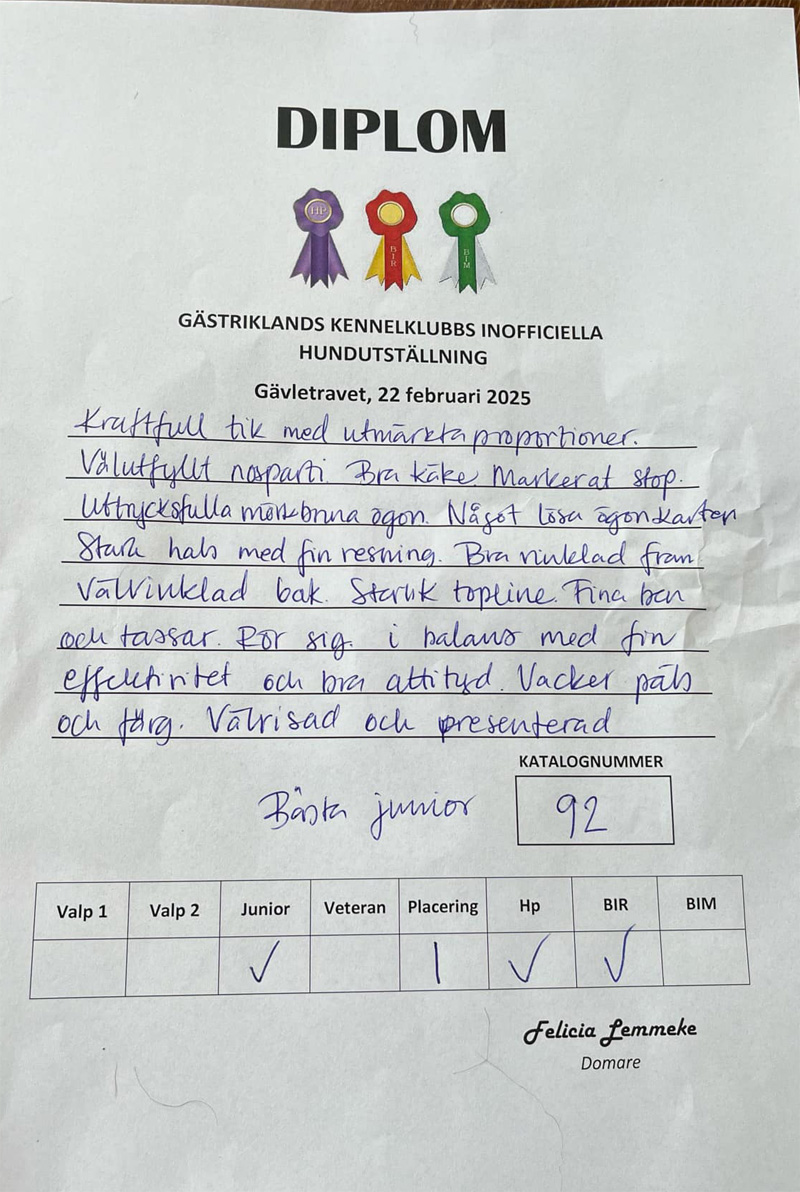 DIPLOM
HP
BIR
BIM
GÄSTRIKLANDS KENNELKLUBBS INOFFICIELLA
HUNDUTSTÄLLNING
Gävletravet, 22 februari 2025
Kraftfull tik med utmärkta proportioner.
Välutfyllt nosparti. Bra käke. Markerat stop.
Uttrycksfulla mörkbruna ögon. Något lösa ögonkanter
Stark hals med fin resning. Bra vinklad fram
Välvinklad bak. Stark topline. Fina ben
och tassar. Rör sig i balans med fin
effektivitet och bra attityd. Vacker päls
och färg. Välvisad och presenterad
KATALOGNUMMER
Bästa junior 92
Valp 1 Valp 2 Junior Veteran Placering Hp BIR BIM
✓ 1 ✓ ✓
Felicia Lemmeke
Domare